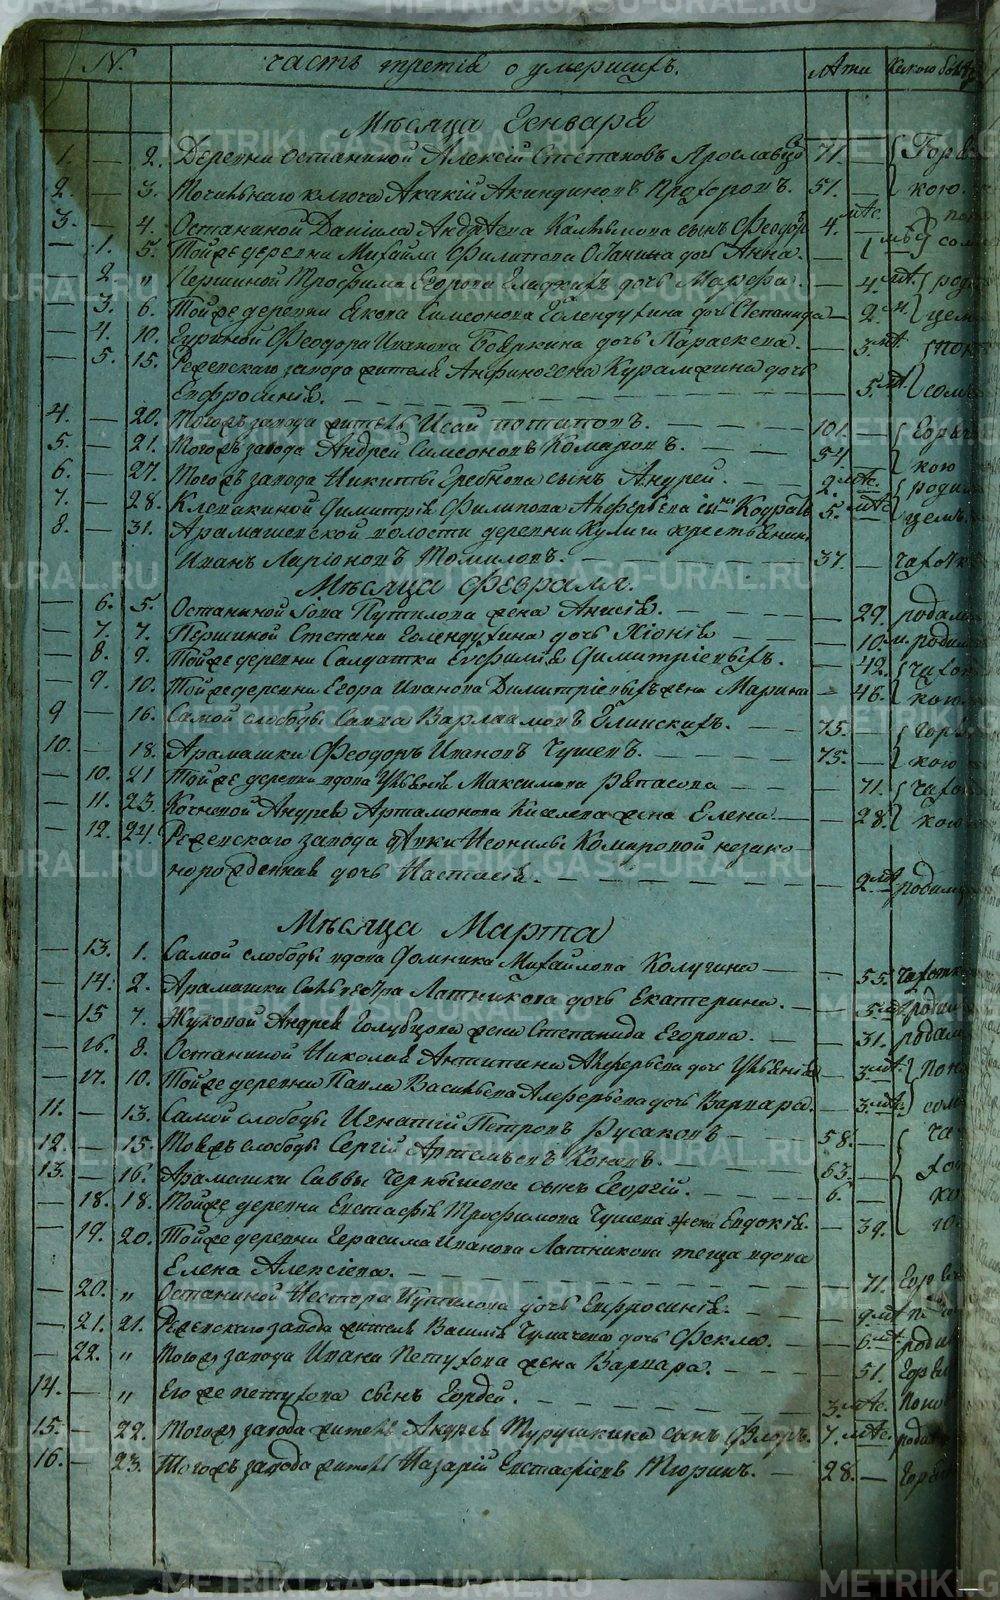 N. часть третія о умершихъ. лѣта какою болѣз
Мѣсяца Генваря
1. — 2. Деревни Останиной Алексій Степановъ Ярославцо 71. — Горя
2. — 3. Точильнаго ключа Акакій Акиндиновъ Прохоровъ. 51. — кою.
3. — 4. Останиной Даніила Андрѣева сынъ Феодор 4. мѣс.
— 1. 5. Тойже деревни Михаила Филиппова дочь Анна. —
— 2. " Першиной Трофима Егорова дочь Марѳа. — 4. род
— 3. 6. Тойже деревни Якова Симеонова Голендухина дочь Степанида — 2. цем
— 4. 10. Гуриной Феодора Иванова Бояркина дочь Параскева. — 3. пон
— 5. 15. Режевскаго завода жителя Анфиногена дочь
Евфросинія. — 5. сол
4. — 20. Тогожъ завода житель Исай Потаповъ. 101. — Горяч
5. — 21. Тогожъ завода Андрей Симеоновъ Комаровъ. 54. — кою
6. — 27. Тогожъ завода Никиты Гребнова сынъ Андрей. 2. мѣс. роди
7. — 28. Клевакиной Димитрія Филипова Алферьева сынъ 5. мѣс. цемъ
8. — 31. Арамашевской волости деревни Кулиги крестьянинъ
Иванъ Ларіоновъ Томиловъ. 37. — чахотк
Мѣсяца Февраля.
— 6. 5. Останиной Путилова жена Анисія. — 29. родам
— 7. 7. Першиной Степана Голендухина дочь Хіонія — 10. родим
— 8. 9. Тойже деревни Салдатка Евфимія Димитріевыхъ. — 42. чахот
— 9. 10. Тойже деревни Егора Иванова Димитріевыхъ жена Марина — 46. кою
9 — 16. Самой слободы Савва Варлаамовъ Глинскихъ. 75. — горя
10. — 18. Арамашки Феодоръ Ивановъ Чушевъ. 75. — кою
— 10. 21 Тойже деревни вдова Ульянія Максимова Рѣпасова — 71. чахо
— 11. 23. Андрея Артамонова Киселева жена Елена. — 28. кою
— 12. 24. Режевскаго завода дѣвки Неонилы Комаровой незако-
норожденная дочь Настасія. — 2. родим
Мѣсяца Марта
— 13. 1. Самой слободы вдова Домника Михайлова Калугина — 55. чахотк
— 14. 2. Арамашки Сильвестра Латникова дочь Екатерина. — 5. родим
— 15 7. Жуковой Андрея Голубцова жена Степанида Егорова. — 31. родам
— 16. 8. Останиной Николая Антипина Алферьева дочь Ульянія — 3. мѣс. пон
— 17. 10. Тойже деревни Павла Васильева Алферьева дочь Варвара. — 3. мѣс. сол
11. — 13. Самой слободы Игнатій Петровъ Русаковъ 58. — ча
12. — 15 Тоежъ слободы Сергій Артемьевъ Коневъ. 63. — хот
13. — 16. Арамашки Саввы Чернышева сынъ Георгій. 6. — ко
— 18. 18. Тойже деревни Евстафія Трофимова Чушева жена Евдокія. — 39. ю
— 19. 20. Тойже деревни Герасима Иванова Латникова теща вдова
Елена Алексіева. — 71. Горяч
— 20. " Останиной Нестора Путилова дочь Евфросинія. —
— 21. 21. Режевскаго завода жителя Василія Чумачева дочь Фекла. — 6. мѣс. роди
— 22. " Тогожъ завода Ивана Петухова жена Варвара. — 51. Горяч
14. — " Егоже Петухова сынъ Гордей. 3. мѣс. поно
15. — 22. Тогожъ завода жителя Андрея Турушкина сынъ Флоръ. 7. мѣс. роди
16. — 23. Тогожъ завода житель Назарій Евстафіевъ Тюринъ. 28. — Горяч
METRIKI.GASO-URAL.RU